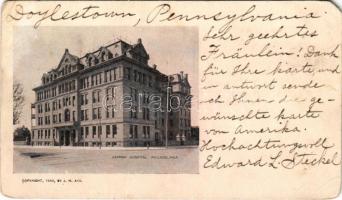 Doylestown, Pennsylvania.
Sehr geehrtes
Fräulein! Dank
für Ihre Karte und
in antwort sende
ich Ihnen die ge-
wünschte Karte
von Amerika.
Hochachtungsvoll
Edward L. Steckel
GERMAN HOSPITAL, PHILADELPHIA.
COPYRIGHT, 1900, BY J. H.